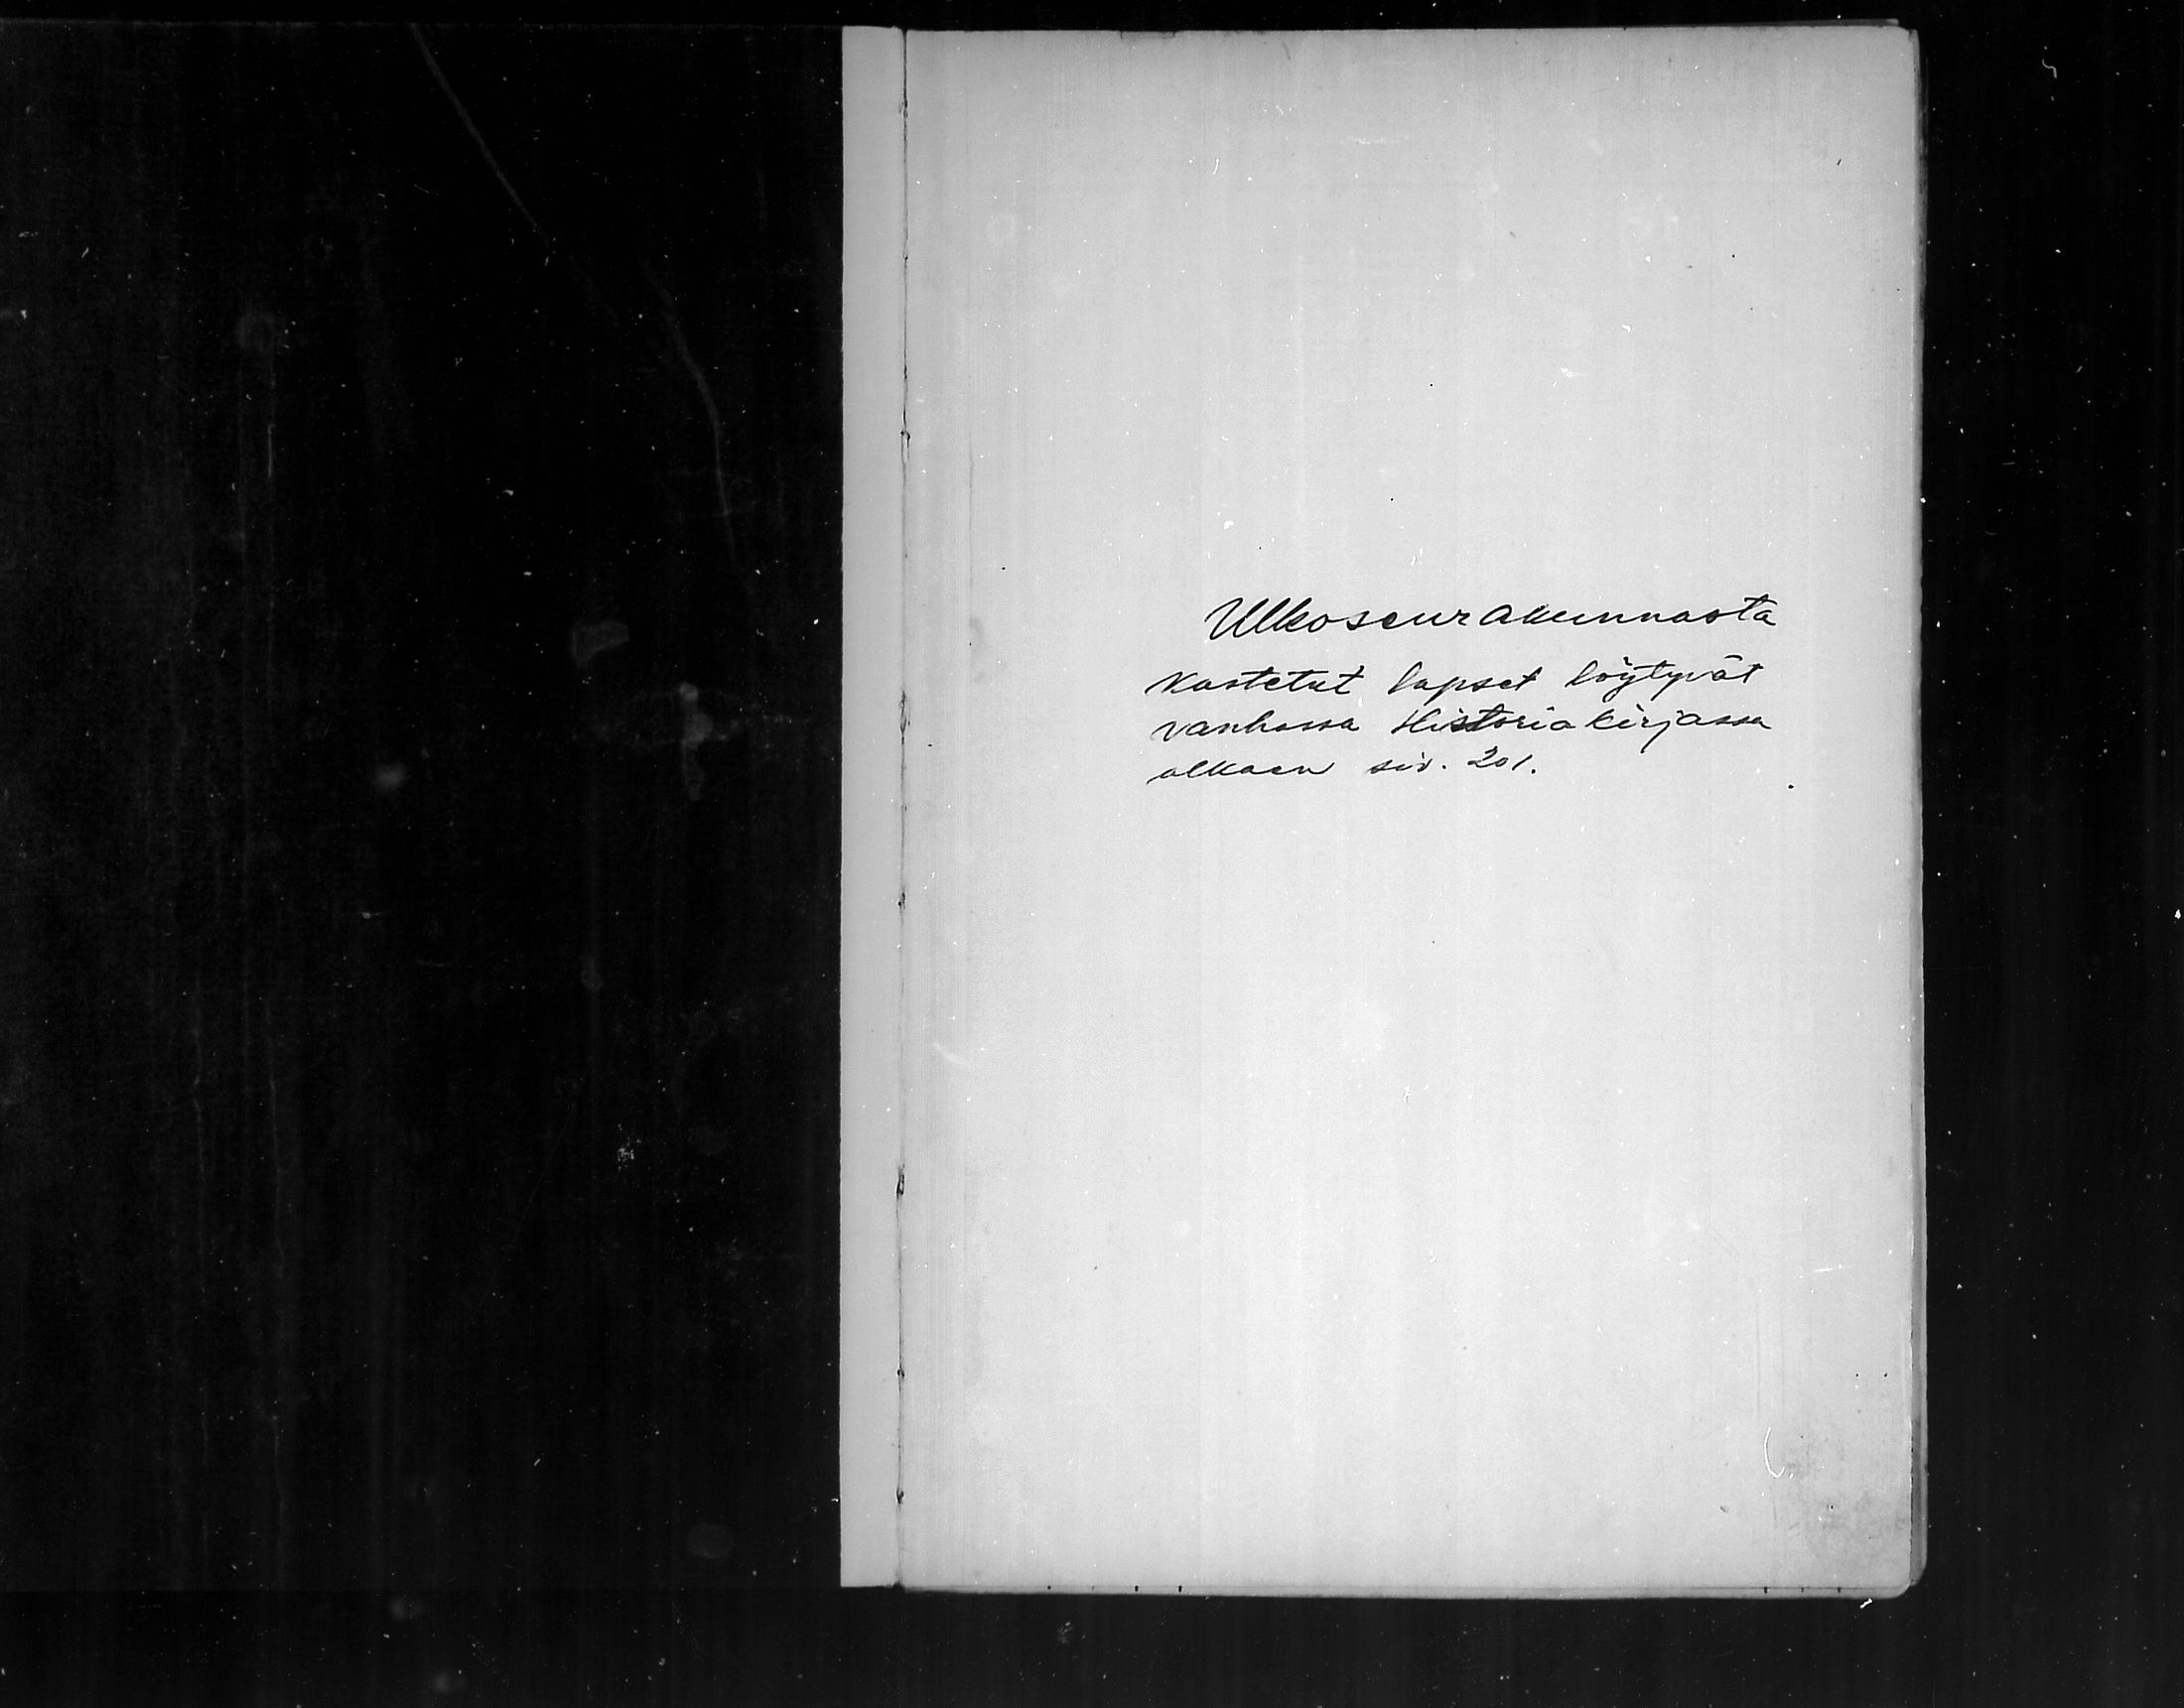 Ulkoseurakunnasta
kastetut lapset löytyvät
vanhassa Historiakirjassa
alkaen siv. 201.